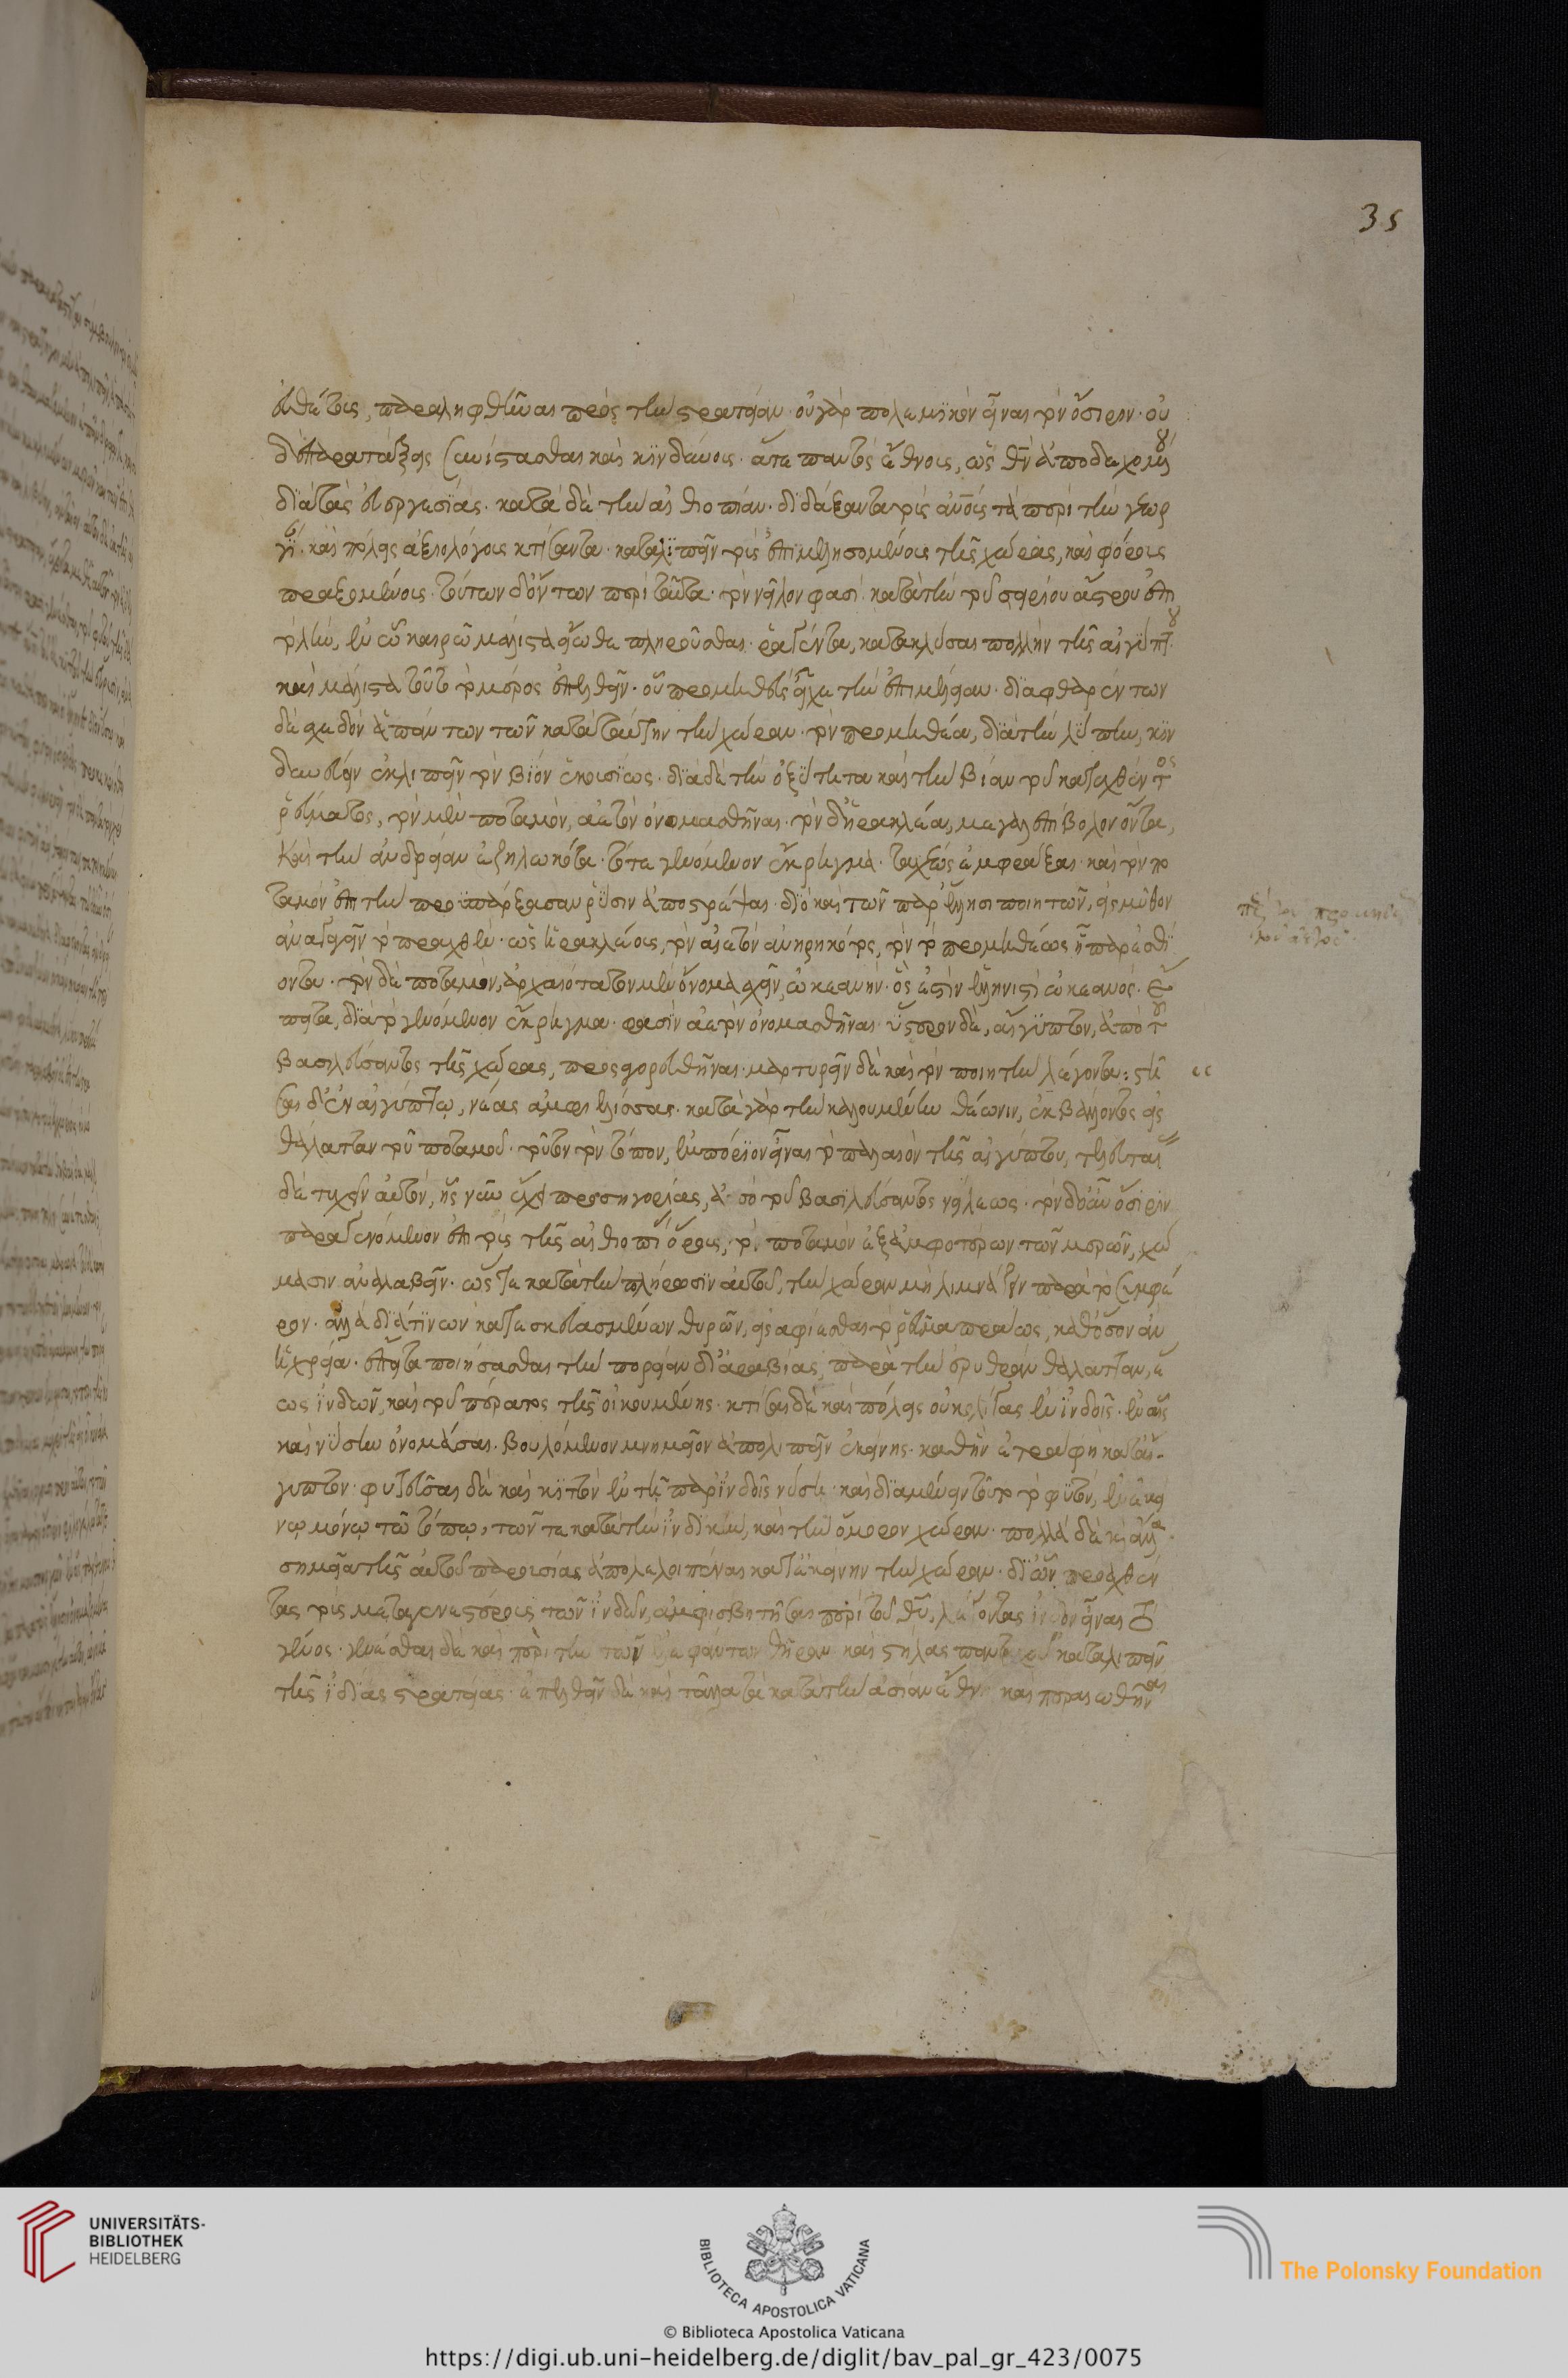 ευθέτους, παραληφθῆναι πρὸς τὴν στρατείαν· οὐ γὰρ πολεμικὸν εἶναι τὸν ὄσιριν· οὐ
δὲ παρατάξεις συνίστασθαι καὶ κινδύνους· ἅτε παντὸς ἔθνους, ὡς θν ἀποδεχομένου
διὰ τὰς εὐεργεσίας· κατὰ δὲ τὴν αἰθιοπίαν· διδάξαντα τοὺς ἀνους τὰ περὶ τὴν γεωρ
γίαν· καὶ πόλεις ἀξιολόγους κτίσαντα· καταλιπεῖν τοὺς ἐπιμελησομένους τῆς χώρας, καὶ φόρους
πραξομένους· τούτων δ' ὄντων περὶ ταῦτα· τὸν νεῖλον φασὶ κατὰ τὴν τοῦ σειρίου ἄστρου ἐπι
τολὴν, ἐν ᾧ καιρῷ μάλιστα εἴωθε πληροῦσθαι· ῥαγέντα, κατακλύσαι πολλὴν τῆς αἰγύπτου·
καὶ μάλιστα τοῦτο τὸ μέρος ἐπελθεῖν· οὗ προμηθεὺς εἶχε τὴν ἐπιμέλειαν· διαφθαρέντων
δὲ σχεδὸν ἁπάντων τῶν κατὰ ταύτην τὴν χώραν· τὸν προμηθέα, διὰ τὴν λύπην, κιν
δυνεύειν ἐκλιπεῖν τὸν βίον ἑκουσίως· διὰ δὲ τὴν ὀξύτητα καὶ τὴν βίαν τοῦ κατεχθέντος
ῥεύματος, τὸν μὲν ποταμὸν, ἀετὸν ὀνομασθῆναι· τὸν δ' ἡρακλέα, μεγαλεπίβολον ὄντα,
καὶ τὴν ἀνδρείαν ἐζηλωκότα· τό τε γενόμενον ἔκρηγμα· ταχέως ἐμφράξαι· καὶ τὸν πο
ταμὸν ἐπὶ τὴν προϋπάρξασαν ῥύσιν ἀποστρέψαι· διὸ καὶ τῶν παρ' ἕλλησι ποιητῶν, εἰς μῦθον
ἀναγαγεῖν τὸ πραχθέν· ὡς ἡρακλέους, τὸν ἀετὸν ἀνῃρηκότος, τὸν τὸ προμηθέως ἧπαρ ἐσθί
οντα· τὸν δὲ ποταμὸν, ἀρχαιότατον μὲν ὄνομα σχεῖν, ὠκεανὴν· ὅς ἐστὶν ἑλληνιστὶ ὠκεανός·
ἔπειτα, διὰ τὸ γενόμενον ἔκρηγμα· φασὶν ἀετὸν ὀνομασθῆναι· ὕστερον δὲ, αἴγυπτον, ἀπὸ τοῦ
βασιλεύσαντος τῆς χώρας, προσαγορευθῆναι· μαρτυρεῖν δὲ καὶ τὸν ποιητὴν λέγοντα: στῆ
σαι δ' ἐν αἰγύπτῳ, νέας ἀμφιελίσσας· κατὰ γὰρ τὴν καλουμένην θέωνιν, ἐκβάλλοντος εἰς
θάλατταν τοῦ ποταμοῦ· τοῦτον τὸν τόπον, ἐμπόριον εἶναι τὸ παλαιὸν τῆς αἰγύπτου, τελευταίας
δὲ τυχεῖν αὐτὸν, ἧς νῦν ἔχει προσηγορίας, ἀπὸ τοῦ βασιλεύσαντος νείλεως· τὸν δ' οὖν ὄσιριν
παραγενόμενον ἐπὶ τοὺς τῆς αἰθιοπίας ὅρους, τὸν ποταμὸν ἐξ ἀμφοτέρων τῶν μερῶν, χώ
μασιν ἀναλαβεῖν· ὥστε κατὰ τὴν πλήρωσιν αὐτοῦ, τὴν χώραν μὴ λιμνάζειν παρὰ τὸ συμφέ
ρον· ἀλλὰ διά τινων κατεσκευασμένων θυρῶν, εἰσαφίεσθαι τὸ ῥεῦμα πραέως, καθ' ὅσον ἂν
ᾖ χρεία· ἔπειτα ποιήσασθαι τὴν πορείαν δι' ἀραβίας, παρὰ τὴν ἐρυθρὰν θάλατταν, ἕ
ως ἰνδῶν, καὶ τοῦ πέρατος τῆς οἰκουμένης· κτίσαι δὲ καὶ πόλεις οὐκ ὀλίγας ἐν ἰνδοῖς· ἐν αἷς
καὶ νύσαν ὀνομάσαι· βουλόμενον μνημεῖον ἀπολιπεῖν ἐκείνης· καθ' ἣν ἐτράφη κατ' αἴ
γυπτον· φυτεῦσαι δὲ καὶ κιττὸν ἐν τῇ παρ' ἰνδοῖς νύσῃ· καὶ διαμένειν τοῦτο τὸ φυτὸν, ἐν ἐκεί
νῳ μόνῳ τῷ τόπῳ, τῶν τε κατὰ τὴν ἰνδικὴν, καὶ τὴν ὅμορον χώραν· πολλὰ δὲ καὶ ἄλλα
σημεῖα τῆς αὐτοῦ παρουσίας ἀπολελοιπέναι κατ' ἐκείνην τὴν χώραν· δι' ὧν προαχθέν
τας τοὺς μεταγενεστέρους τῶν ἰνδῶν, ἀμφισβητῆσαι περὶ τοῦ θυ, λέγοντας ἰνδὸν εἶναι τὸ
γένος· γενέσθαι δὲ καὶ περὶ τὴν τῶν ἐλεφάντων θήραν καὶ στήλας πανταχοῦ καταλιπεῖν
τῆς ἰδίας στρατείας· ἐπελθεῖν δὲ καὶ τἄλλα τὰ κατὰ τὴν ἀσίαν ἔθνη καὶ περαιωθῆναι
35
https://digi.ub.uni-heidelberg.de/diglit/bav_pal_gr_423/0075
UNIVERSITÄTS-
BIBLIOTHEK
HEIDELBERG
BIBLIOTECA APOSTOLICA VATICANA
© Biblioteca Apostolica Vaticana
The Polonsky Foundation